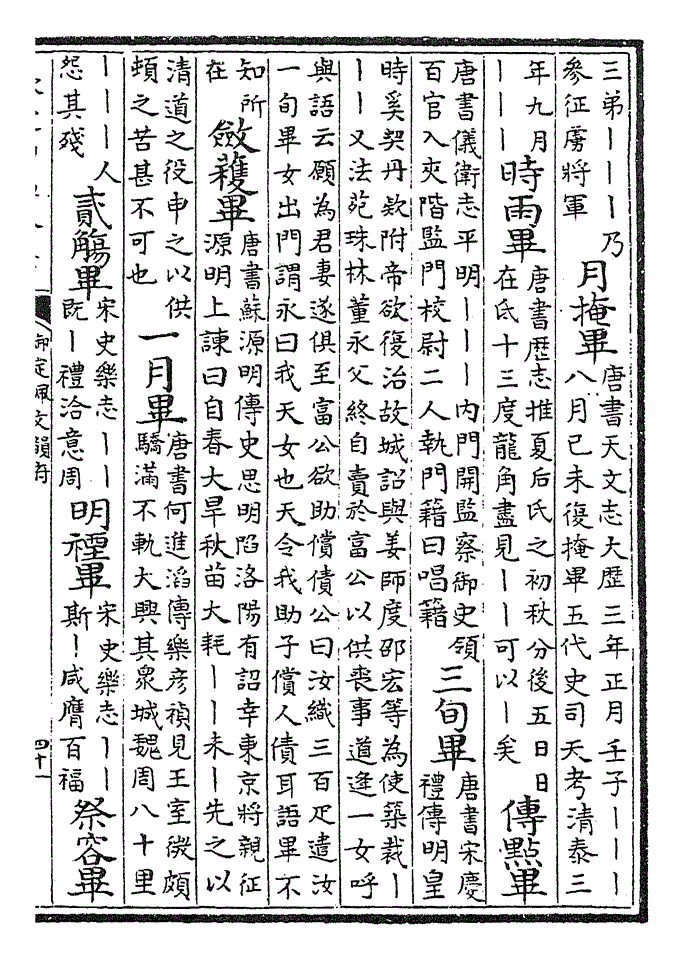 三弟｜｜｜乃
參征虜將軍
月掩畢
唐書天文志大歷三年正月壬子｜｜｜
八月己未復掩畢五代史司天考清泰三
年九月
｜｜｜
時雨畢
唐書歷志推夏后氏之初秋分後五日日
在氐十三度龍角盡見｜｜可以｜矣
傳點畢
唐書儀衛志平明｜｜｜內門開監察御史領
百官入夾階監門校尉二人執門籍曰唱籍
三旬畢
唐書宋慶
禮傳明皇
時奚契丹款附帝欲復治故城詔與姜師度邵宏等為使築裁｜
｜｜又法苑珠林董永父終自賣於富公以供喪事道逢一女呼
與語云願為君妻遂俱至富公欲助償債公曰汝織三百疋遣汝
一旬畢女出門謂永曰我天女也天令我助子償人債耳語畢不
知所
在
斂穫畢
唐書蘇源明傳史思明陷洛陽有詔幸東京將親征
源明上諫曰自春大旱秋苗大耗｜｜未｜先之以
清道之役申之以供
頓之苦甚不可也
一月畢
唐書何進滔傳樂彥禎見王室微頗
驕滿不軌大興其衆城魏周八十里
｜｜｜人
怨其殘
貳觴畢
宋史樂志｜｜
既｜禮洽意周
明禋畢
宋史樂志｜｜
斯｜咸膺百福
祭容畢
御定佩文韻府
四十一